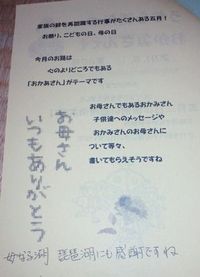 家族の絆を再認識する行事がたくさんある五月！
お祭り、こどもの日、母の日
今月のお題は
心のよりどころでもある
「おかあさん」がテーマです
お母さんでもあるおかみさん
子供達へのメッセージや
おかみさんのお母さんに
ついて等々、
書いてもらえそうですね
お母さん
いつもありがとう
母なる湖 琵琶湖にも感謝ですね